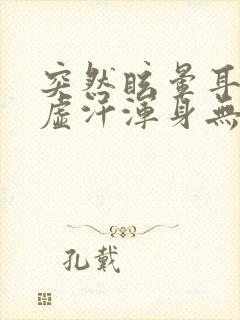 突然眩暈耳
虚汗渾身無
孔戴